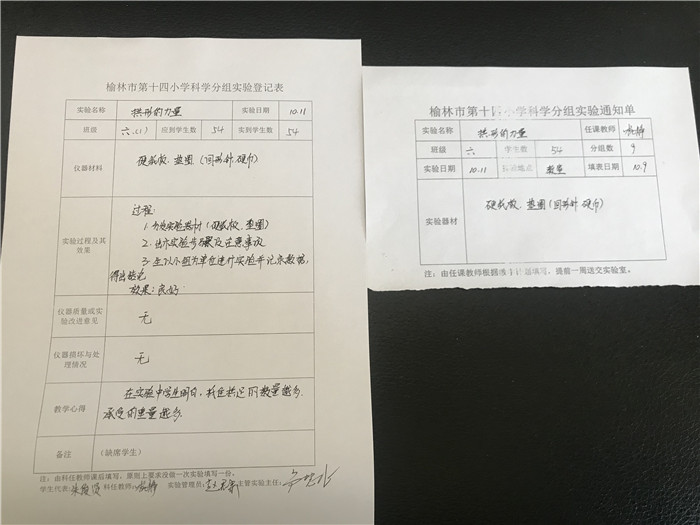 榆林市第十四小学科学分组实验登记表
实验名称 拱形的力量 实验日期 10.11
班级 六.(1) 应到学生数 54 实到学生数 54
仪器材料 硬纸板.垫圈(回形针.硬币)
实验过程及其效果
过程:
1.分发实验器材(硬纸板、垫圈)
2.出示实验步骤及注意事项
3.生以小组为单位进行实验并记录数据,
得出结论
效果:良好
仪器质量或实验改进意见 无
仪器损坏与处理情况 无
教学心得
在实验中学生明白,
的数量越多.
承受的重量越多.
备注 (缺席学生)
注:由科任教师课后填写,原则上要求没做一次实验填写一份。
学生代表: 科任教师: 实验管理员: 主管实验主任:
榆林市第十四小学科学分组实验通知单
实验名称 拱形的力量 任课教师
班级 六 学生数 54 分组数 9
实验日期 10.11 实验地点 教室 填表日期 10.9
实验器材 硬纸板、垫圈(回形针.硬币)
注:由任课教师根据 填写,提前一周送交实验室。